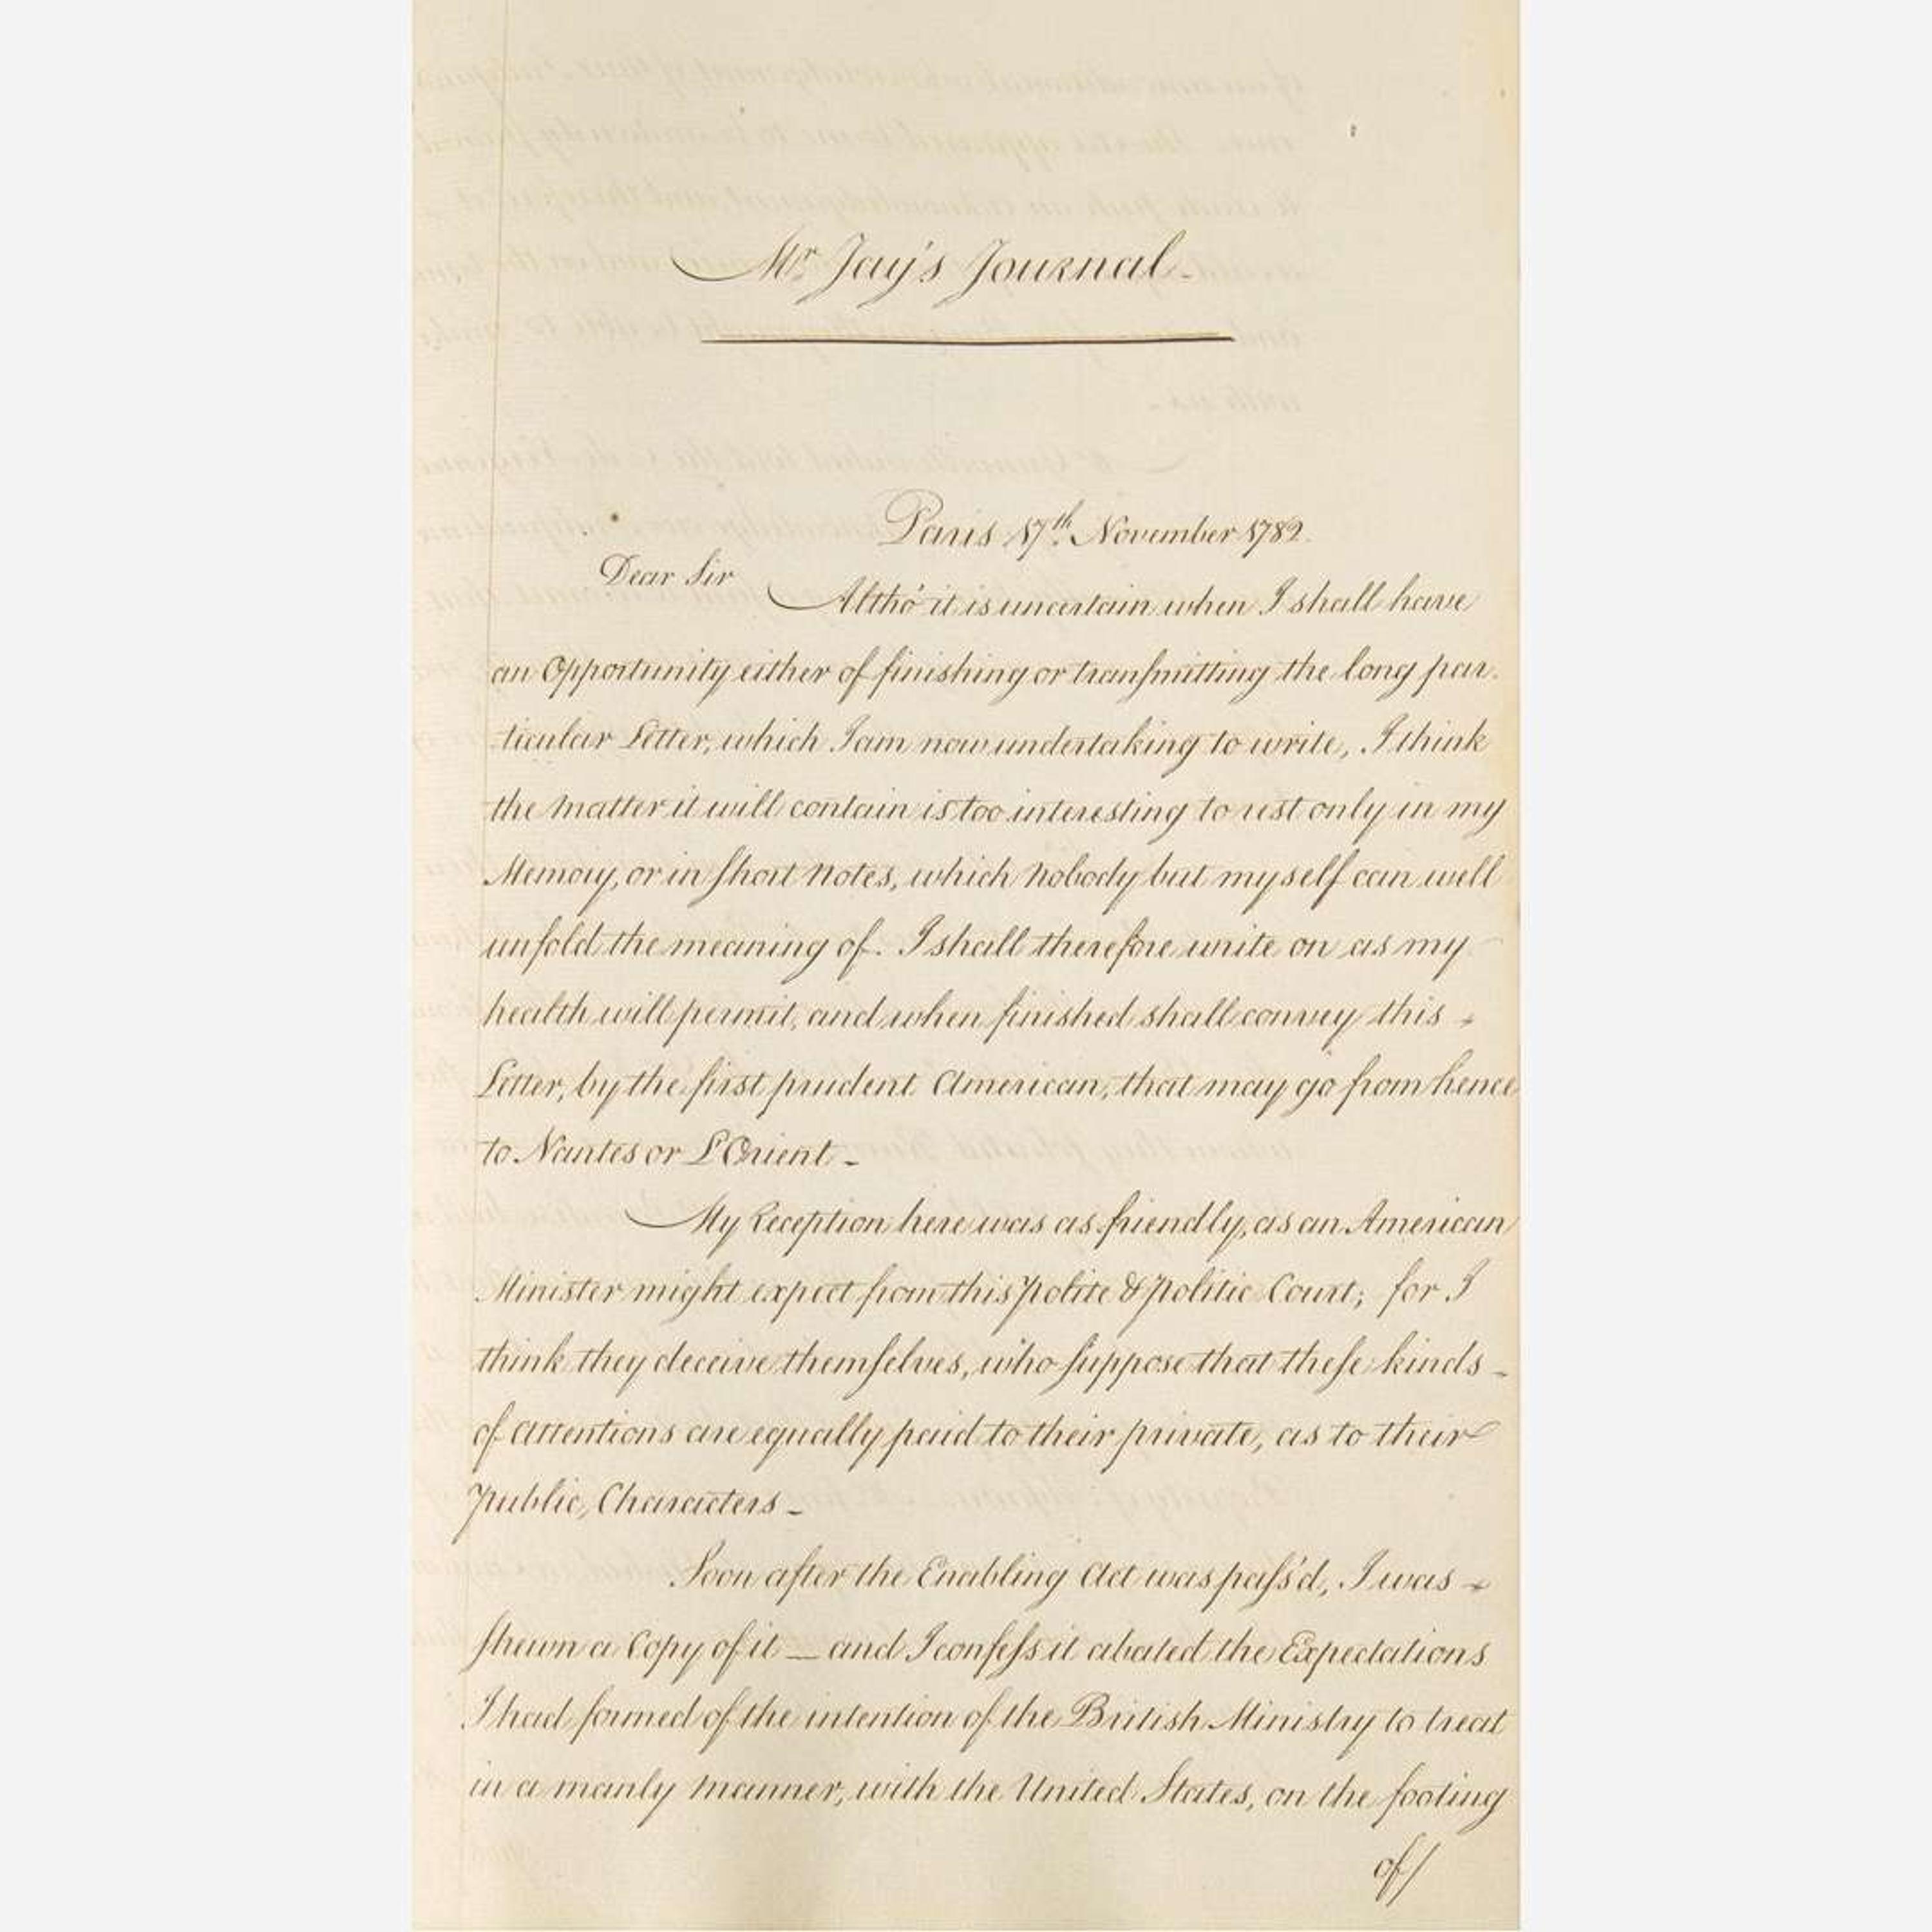 Mr. Jay's Journal.
Paris 17th. November 1782.
Dear Sir
Altho' it is uncertain when I shall have
an Opportunity either of finishing or transmitting the long par-
ticular Letter, which I am now undertaking to write, I think
the Matter it will contain is too interesting to rest only in my
Memory, or in short Notes, which Nobody but myself can well
unfold the meaning of. I shall therefore write on as my
health will permit, and when finished shall convey this
Letter, by the first prudent American, that may go from hence
to Nantes or L'Orient. -
My Reception here was as friendly, as an American
Minister might expect from this polite & politic Court; for I
think they deceive themselves, who suppose that these kinds -
of Attentions are equally paid to their private, as to their
public, Characters -
Soon after the Enabling Act was pass'd, I was -
shewn a Copy of it — and I confess it abated the Expectations
I had formed of the intention of the British Ministry to treat
in a manly Manner, with the United States, on the footing
of/